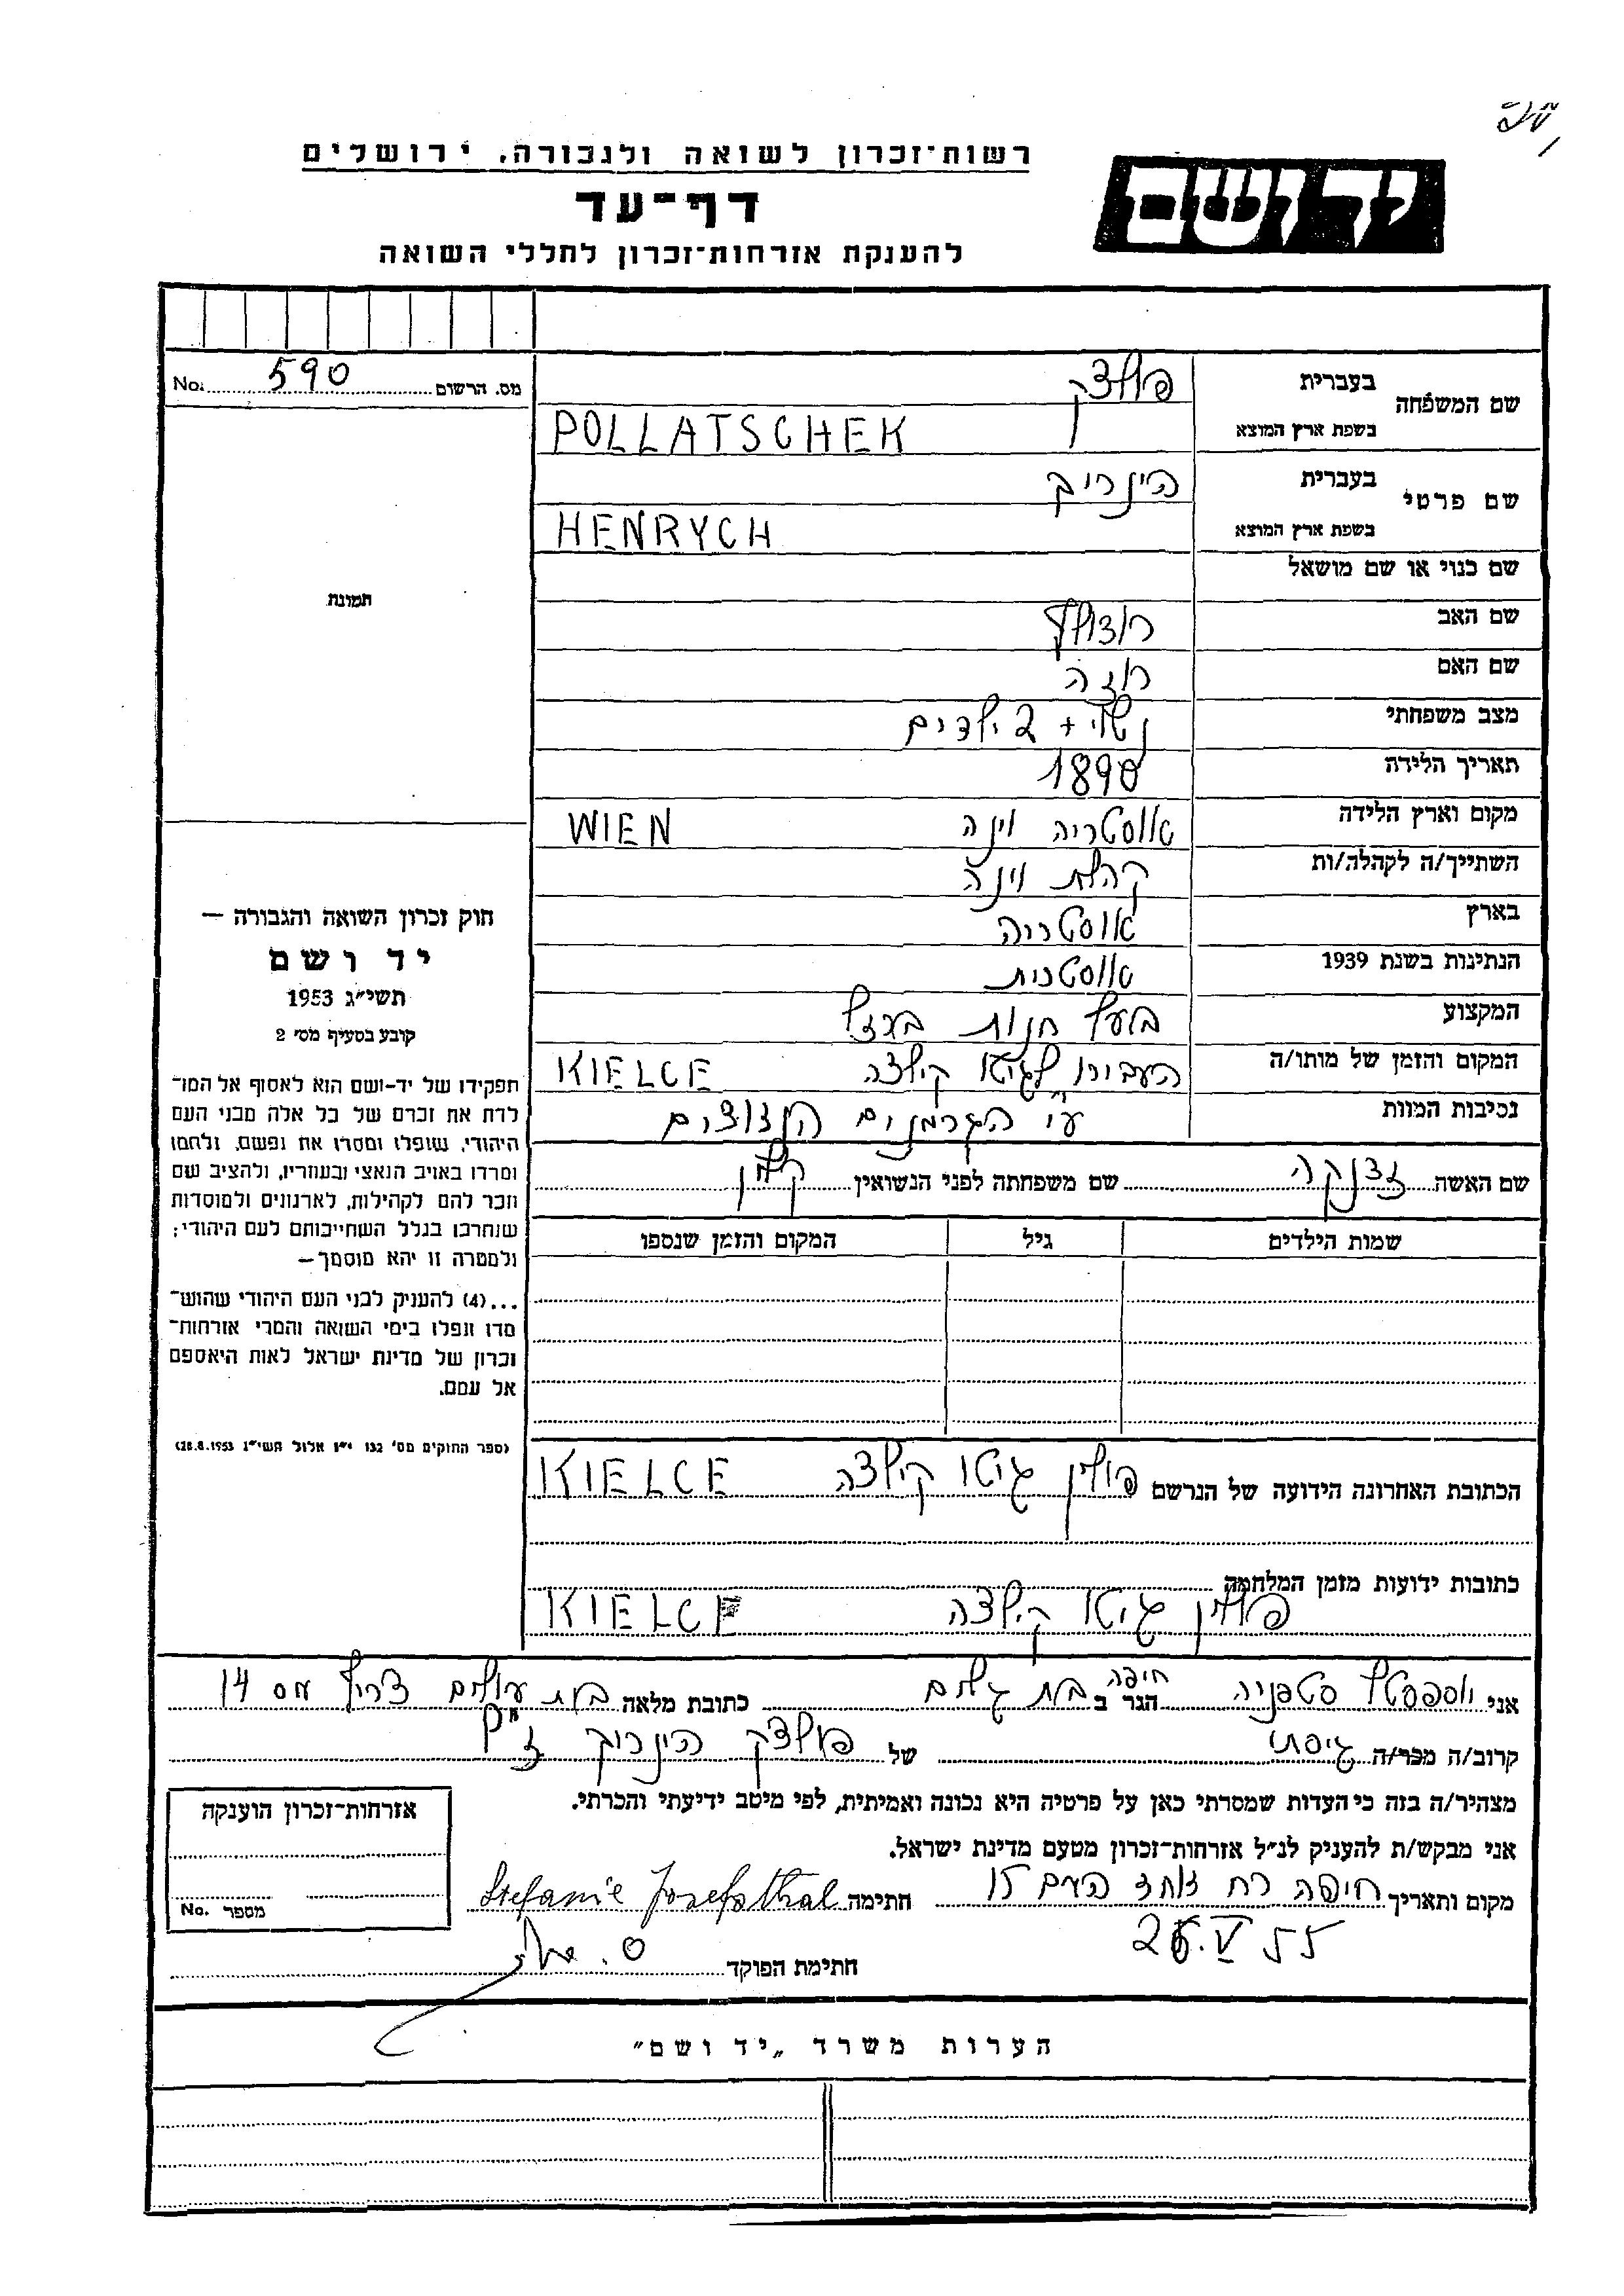 רשות־זכרון לשואה ולגבורה, ירושלים
דף־עד
להענקת אזרחות־זכרון לחללי השואה
יד ושם
מס. הרשום 590 No.
תמונה
שם המשפחה
בעברית פולצק
בשפת ארץ המוצא POLLATSCHEK
שם פרטי
בעברית הינריך
בשפת ארץ המוצא HENRYCH
שם כנוי או שם מושאל
שם האב רודולף
שם האם רוזה
מצב משפחתי נשוי + 2 ילדים
תאריך הלידה 1890
מקום וארץ הלידה אוסטריה וינה WIEN
השתייך/ה לקהלה/ות קהלת וינה
בארץ אוסטריה
הנתינות בשנת 1939 אוסטרית
המקצוע בעל חנות ברזל
המקום והזמן של מותו/ה העבירו לגיטו קילצה KIELCE
נסיבות המוות ע"י הגרמנים הנאצים
שם האשה זדנקה שם משפחתה לפני הנשואין
שמות הילדים גיל המקום והזמן שנספו
הכתובת האחרונה הידועה של הנרשם פולין גיטו קילצה KIELCE
כתובות ידועות מזמן המלחמה
פולין גיטו קילצה KIELCE
חוק זכרון השואה והגבורה —
יד ושם
תשי״ג 1953
קובע בסעיף מס׳ 2
תפקידו של יד־ושם הוא לאסוף אל המו־
לדת את זכרם של כל אלה מבני העם
היהודי, שנפלו ומסרו את נפשם, נלחמו
ומרדו באויב הנאצי ובעוזריו, ולהציב שם
וזכר להם לקהילות, לארגונים ולמוסדות
שנחרבו בגלל השתייכותם לעם היהודי;
ולמטרה זו יהא מוסמך—
...(4) להעניק לבני העם היהודי שהוש־
מדו ונפלו בימי השואה והמרי אזרחות־
זכרון של מדינת ישראל לאות היאספם
אל עמם.
(ספר החוקים מס׳ 132 י״ז אלול תשי״ג 28.8.1953)
אני יוספטל סטפניה הגר ב חיפה בת גלים כתובת מלאה בת עולים צריף מס 14
קרוב/ה מכר/ה גיסתי של פולצק הינריך ז"ל
מצהיר/ה בזה כי העדות שמסרתי כאן על פרטיה היא נכונה ואמיתית, לפי מיטב ידיעתי והכרתי.
אני מבקש/ת להעניק לנ״ל אזרחות־זכרון מטעם מדינת ישראל.
מקום ותאריך חיפה רח אחד העם 15 חתימה Stefanie Josefsthal
חתימת הפוקד
אזרחות־זכרון הוענקה
מספר No.
הערות משרד „יד ושם״